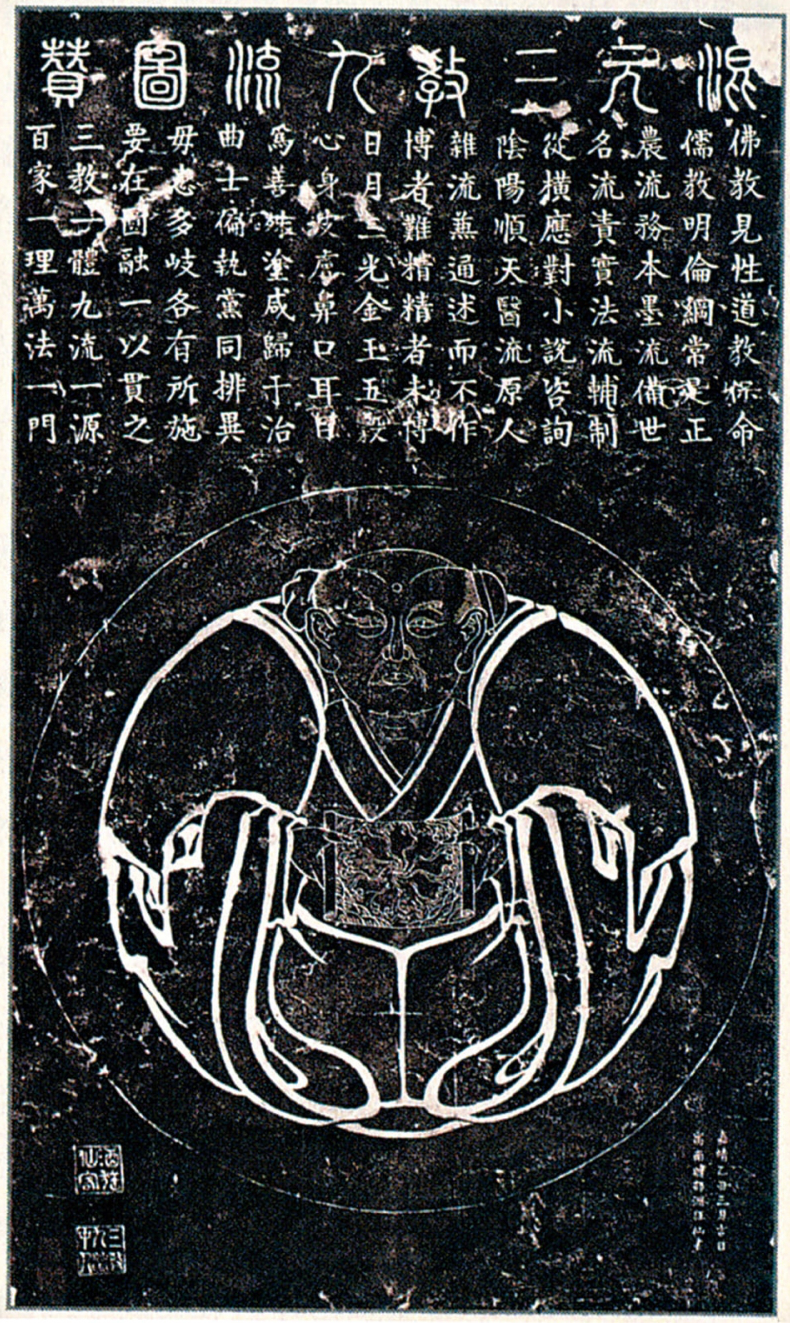 混元三教九流圖贊
佛教見性道教保命
儒教明倫綱常是正
農流務本墨流備世
名流責實法流輔制
從橫應對小說咨詢
陰陽順天醫流原人
雜流兼通述而不作
博者難精精者未博
日月三光金玉五穀
心身皮膚鼻口耳目
爲善殊塗咸歸于治
曲士偏執黨同排異
毋患多岐各有所施
要在圓融一以貫之
三教一體九流一源
百家一理萬法一門
嘉靖乙丑三月吉日